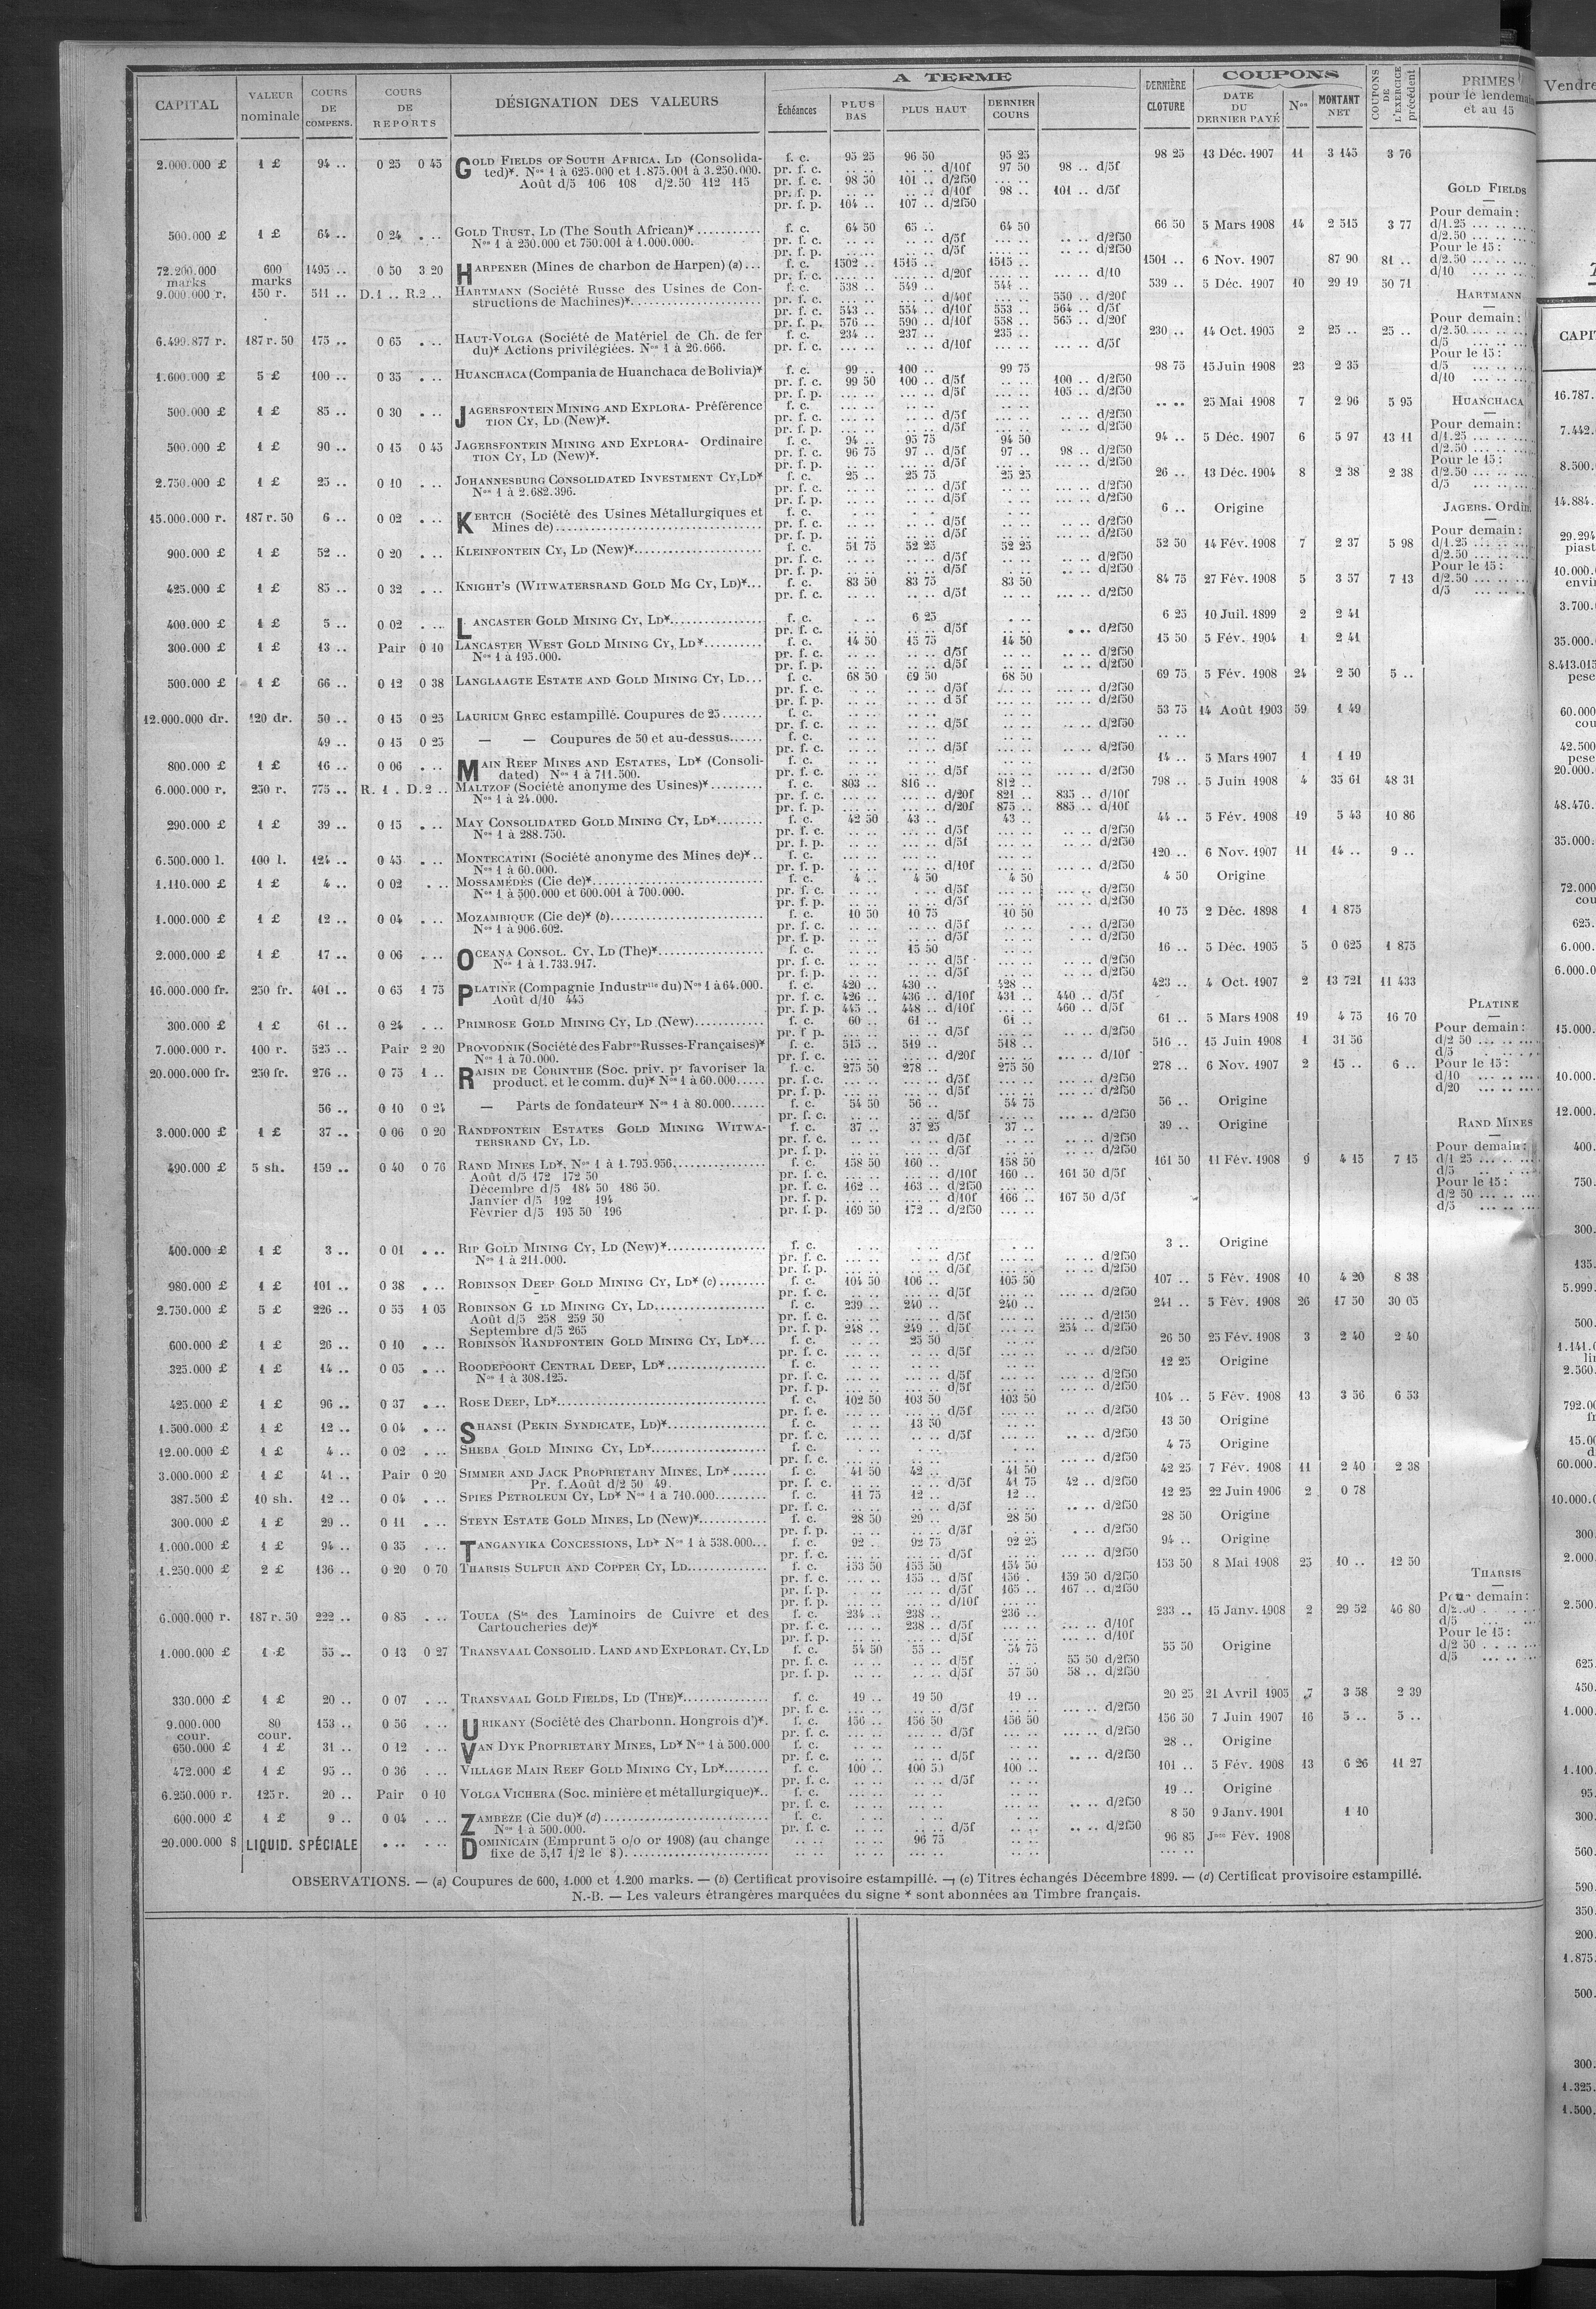 CAPITAL VALEUR nominale COURS DE COMPENS. COURS DE REPORTS DÉSIGNATION DES VALEURS A TERME Échéances PLUS BAS PLUS HAUT DERNIER COURS DERNIÈRE CLOTURE COUPONS DATE DU DERNIER PAYÉ Nos MONTANT NET COUPONS DE L'EXERCICE précédent PRIMES pour le lendemain et au 15
2.000.000 £ 1 £ 94 .. 0 25 0 45 GOLD FIELDS OF SOUTH AFRICA, LD (Consolida- f. c. 95 25 96 50 95 25 98 25 13 Déc. 1907 11 3 145 3 76
ted)*. Nos 1 à 625.000 et 1.875.001 à 3.250.000. pr. f. c. d/10f 97 50 98 .. d/5f
Août d/5 106 108 d/2.50 112 115 pr. f. c. 98 50 101 .. d/2f50
pr. f. p. d/10f 98 .. 101 .. d/5f
pr. f. p. 104 .. 107 .. d/2f50
500.000 £ 1 £ 64 .. 0 24 GOLD TRUST, LD (The South African)* f. c. 64 50 65 .. 64 50 66 50 5 Mars 1908 14 2 515 3 77
Nos 1 à 250.000 et 750.001 à 1.000.000. pr. f. c. d/5f d/2f50
pr. f. p. d/5f d/2f50
72.200.000 marks 600 marks 1495 .. 0 50 3 20 HARPENER (Mines de charbon de Harpen) (a) f. c. 1502 .. 1515 .. 1515 .. 1501 .. 6 Nov. 1907 87 90 81 ..
pr. f. c. d/20f d/10
9.000.000 r. 150 r. 511 .. D.1 .. R.2 .. HARTMANN (Société Russe des Usines de Con- f. c. 538 .. 549 .. 544 .. 539 .. 5 Déc. 1907 10 29 19 50 71
structions de Machines)* pr. f. c. d/40f 550 .. d/20f
pr. f. c. 543 .. 554 .. d/10f 553 .. 564 .. d/5f
pr. f. p. 576 .. 590 .. d/10f 558 .. 565 .. d/20f
6.499.877 r. 187 r. 50 175 .. 0 65 HAUT-VOLGA (Société de Matériel de Ch. de fer f. c. 234 .. 237 .. 235 .. 230 .. 14 Oct. 1905 2 25 .. 25 ..
du)* Actions privilégiées. Nos 1 à 26.666. pr. f. c. d/10f d/5f
1.600.000 £ 5 £ 100 .. 0 35 HUANCHACA (Compania de Huanchaca de Bolivia)* f. c. 99 .. 100 .. 99 75 98 75 15 Juin 1908 23 2 35
pr. f. c. 99 50 100 .. d/5f 100 .. d/2f50
pr. f. p. d/5f 105 .. d/2f50
500.000 £ 1 £ 85 .. 0 30 JAGERSFONTEIN MINING AND EXPLORA- Préférence f. c. 25 Mai 1908 7 2 96 5 95
TION CY, LD (New)*. pr. f. c. d/5f d/2f50
pr. f. p. d/5f d/2f50
500.000 £ 1 £ 90 .. 0 15 0 45 JAGERSFONTEIN MINING AND EXPLORA- Ordinaire f. c. 94 .. 95 75 94 50 94 .. 5 Déc. 1907 6 5 97 13 11
TION CY, LD (New)*. pr. f. c. 96 75 97 .. d/5f 97 .. 98 .. d/2f50
pr. f. p. d/5f d/2f50
2.750.000 £ 1 £ 25 .. 0 10 JOHANNESBURG CONSOLIDATED INVESTMENT CY, LD* f. c. 25 .. 25 75 25 25 26 .. 13 Déc. 1904 8 2 38 2 38
Nos 1 à 2.682.396. pr. f. c. d/5f d/2f50
pr. f. p. d/5f d/2f50
15.000.000 r. 187 r. 50 6 .. 0 02 KERTCH (Société des Usines Métallurgiques et f. c. 6 .. Origine
Mines de) pr. f. c. d/5f d/2f50
pr. f. p. d/5f d/2f50
900.000 £ 1 £ 52 .. 0 20 KLEINFONTEIN CY, LD (New)* f. c. 51 75 52 25 52 25 52 50 14 Fév. 1908 7 2 37 5 98
pr. f. c. d/5f d/2f50
pr. f. p. d/5f d/2f50
425.000 £ 1 £ 85 .. 0 32 KNIGHT'S (WITWATERSRAND GOLD MG CY, LD)* f. c. 83 50 83 75 83 50 84 75 27 Fév. 1908 5 3 57 7 13
pr. f. c. d/5f d/2f50
400.000 £ 1 £ 5 .. 0 02 LANCASTER GOLD MINING CY, LD* f. c. 6 25 6 25 10 Juil. 1899 2 2 41
pr. f. c. d/5f d/2f50
300.000 £ 1 £ 13 .. Pair 0 10 LANCASTER WEST GOLD MINING CY, LD* f. c. 14 50 15 75 14 50 15 50 5 Fév. 1904 1 2 41
Nos 1 à 195.000. pr. f. c. d/5f d/2f50
pr. f. p. d/5f d/2f50
500.000 £ 1 £ 66 .. 0 12 0 38 LANGLAAGTE ESTATE AND GOLD MINING CY, LD f. c. 68 50 69 50 68 50 69 75 5 Fév. 1908 24 2 50 5 ..
pr. f. c. d/5f d/2f50
pr. f. p. d 5f d/2f50
12.000.000 dr. 120 dr. 50 .. 0 15 0 25 LAURIUM GREC estampillé. Coupures de 25 f. c. 53 75 14 Août 1903 59 1 49
pr. f. c. d/5f d/2f50
49 .. 0 15 0 25 — — Coupures de 50 et au-dessus f. c.
pr. f. c. d/5f d/2f50
800.000 £ 1 £ 16 .. 0 06 MAIN REEF MINES AND ESTATES, LD* (Consoli- f. c. 14 .. 5 Mars 1907 1 1 19
dated) Nos 1 à 711.500. pr. f. c. d/5f d/2f50
6.000.000 r. 250 r. 775 .. R. 1 . D. 2 .. MALTZOF (Société anonyme des Usines)* f. c. 803 .. 816 .. 812 .. 798 .. 5 Juin 1908 4 35 61 48 31
Nos 1 à 24.000. pr. f. c. d/20f 821 .. 835 .. d/10f
pr. f. p. d/20f 875 .. 885 .. d/10f
290.000 £ 1 £ 39 .. 0 15 MAY CONSOLIDATED GOLD MINING CY, LD* f. c. 42 50 43 .. 43 .. 44 .. 5 Fév. 1908 19 5 43 10 86
Nos 1 à 288.750. pr. f. c. d/5f d/2f50
pr. f. p. d/5f d/2f50
6.500.000 l. 100 l. 124 .. 0 45 MONTECATINI (Société anonyme des Mines de)* f. c. 120 .. 6 Nov. 1907 11 14 .. 9 ..
Nos 1 à 60.000. pr. f. p. d/10f d/2f50
1.110.000 £ 1 £ 4 .. 0 02 MOSSAMÉDÈS (Cie de)* f. c. 4 .. 4 50 4 50 4 50 Origine
Nos 1 à 500.000 et 600.001 à 700.000. pr. f. c. d/5f d/2f50
pr. f. p. d/5f d/2f50
1.000.000 £ 1 £ 12 .. 0 04 MOZAMBIQUE (Cie de)* (b) f. c. 10 50 10 75 10 50 10 75 2 Déc. 1898 1 1 875
Nos 1 à 906.602. pr. f. c. d/5f d/2f50
pr. f. p. d/5f d/2f50
2.000.000 £ 1 £ 17 .. 0 06 OCEANA CONSOL. CY, LD (The)* f. c. 15 50 16 .. 5 Déc. 1905 5 0 625 1 875
Nos 1 à 1.733.917. pr. f. c. d/5f d/2f50
pr. f. p. d/5f d/2f50
16.000.000 fr. 250 fr. 401 .. 0 65 1 75 PLATINE (Compagnie Industrlle du) Nos 1 à 64.000. f. c. 420 .. 430 .. 428 .. 423 .. 4 Oct. 1907 2 13 721 11 433
Août d/10 445 pr. f. c. 426 .. 436 .. d/10f 431 .. 440 .. d/5f
pr. f. p. 445 .. 448 .. d/10f 460 .. d/5f
300.000 £ 1 £ 61 .. 0 24 PRIMROSE GOLD MINING CY, LD (New) f. c. 60 .. 61 .. 61 .. 61 .. 5 Mars 1908 19 4 75 16 70
pr. f p. d/5f d/2f50
7.000.000 r. 100 r. 525 .. Pair 2 20 PROVODNIK (Société des Fabres Russes-Françaises)* f. c. 515 .. 519 .. 518 .. 516 .. 15 Juin 1908 1 31 56
Nos 1 à 70.000. pr. f. c. d/20f d/10f
20.000.000 fr. 250 fr. 276 .. 0 75 1 .. RAISIN DE CORINTHE (Soc. priv. pr favoriser la f. c. 275 50 278 .. 275 50 278 .. 6 Nov. 1907 2 15 .. 6 ..
product. et le comm. du)* Nos 1 à 60.000 pr. f. c. d/5f d/2f50
pr. f. p. d/5f d/2f50
56 .. 0 10 0 24 — Parts de fondateur* Nos 1 à 80.000 f. c. 54 50 56 .. 54 75 56 .. Origine
pr. f. c. d/5f d/2f50
3.000.000 £ 1 £ 37 .. 0 06 0 20 RANDFONTEIN ESTATES GOLD MINING WITWA- f. c. 37 .. 37 25 37 .. 39 .. Origine
TERSRAND CY, LD. pr. f. c. d/5f d/2f50
pr. f. p. d/5f d/2f50
490.000 £ 5 sh. 159 .. 0 40 0 76 RAND MINES LD*, Nos 1 à 1.795.956 f. c. 158 50 160 .. 158 50 161 50 11 Fév. 1908 9 4 15 7 15
Août d/5 172 172 50 pr. f. c. d/10f 160 .. 161 50 d/5f
Décembre d/5 184 50 186 50. pr. f. c. 162 .. 163 .. d/2f50
Janvier d/5 192 194 pr. f. p. d/10f 166 .. 167 50 d/5f
Février d/5 195 50 196 pr. f. p. 169 50 172 .. d/2f50
400.000 £ 1 £ 3 .. 0 01 RIP GOLD MINING CY, LD (New)* f. c. 3 .. Origine
Nos 1 à 211.000. pr. f. c. d/5f d/2f50
pr. f. p. d/5f d/2f50
980.000 £ 1 £ 101 .. 0 38 ROBINSON DEEP GOLD MINING CY, LD* (c) f. c. 104 50 106 .. 105 50 107 .. 5 Fév. 1908 10 4 20 8 38
pr. f. c. d/5f d/2f50
2.750.000 £ 5 £ 226 .. 0 55 1 05 ROBINSON G LD MINING CY, LD f. c. 239 .. 240 .. 240 .. 241 .. 5 Fév. 1908 26 17 50 30 05
Août d/5 258 259 50 pr. f. c. d/5f d/2f50
Septembre d/5 265 pr. f. p. 248 .. 249 .. d/5f 254 .. d/2f50
600.000 £ 1 £ 26 .. 0 10 ROBINSON RANDFONTEIN GOLD MINING CY, LD* f. c. 25 50 26 50 25 Fév. 1908 3 2 40 2 40
pr. f. c. d/5f d/2f50
325.000 £ 1 £ 14 .. 0 05 ROODEPOORT CENTRAL DEEP, LD* f. c. 12 25 Origine
Nos 1 à 308.125. pr. f. c. d/5f d/2f50
pr. f. p. d/5f d/2f50
425.000 £ 1 £ 96 .. 0 37 ROSE DEEP, LD* f. c. 102 50 103 50 103 50 104 .. 5 Fév. 1908 13 3 56 6 53
pr. f. c. d/5f d/2f50
1.500.000 £ 1 £ 12 .. 0 04 SHANSI (PEKIN SYNDICATE, LD)* f. c. 13 50 13 50 Origine
pr. f. c. d/5f d/2f50
12.00.000 £ 1 £ 4 .. 0 02 SHEBA GOLD MINING CY, LD* f. c. 4 75 Origine
pr. f. c. d/2f50
3.000.000 £ 1 £ 41 .. Pair 0 20 SIMMER AND JACK PROPRIETARY MINES, LD* f. c. 41 50 42 .. 41 50 42 25 7 Fév. 1908 11 2 40 2 38
Pr. f. Août d/2 50 49. pr. f. c. d/5f 41 75 42 .. d/2f50
387.500 £ 10 sh. 12 .. 0 04 SPIES PETROLEUM CY, LD* Nos 1 à 710.000 f. c. 11 75 12 .. 12 .. 12 25 22 Juin 1906 2 0 78
pr. f. c. d/5f d/2f50
300.000 £ 1 £ 29 .. 0 11 STEYN ESTATE GOLD MINES, LD (New)* f. c. 28 50 29 .. 28 50 28 50 Origine
pr. f. p. d/5f d/2f50
1.000.000 £ 1 £ 94 .. 0 35 TANGANYIKA CONCESSIONS, LD* Nos 1 à 538.000 f. c. 92 .. 92 75 92 25 94 .. Origine
pr. f. c. d/5f d/2f50
1.250.000 £ 2 £ 136 .. 0 20 0 70 THARSIS SULFUR AND COPPER CY, LD f. c. 153 50 155 50 154 50 153 50 8 Mai 1908 25 10 .. 12 50
pr. f. c. 155 .. d/5f 156 . 159 50 d/2f50
pr. f. p. d/5f 165 .. 167 .. d/2f50
pr. f. p. d/10f
6.000.000 r. 187 r. 50 222 .. 0 85 TOULA (Sté des Laminoirs de Cuivre et des f. c. 234 .. 238 .. 236 .. 233 .. 15 Janv. 1908 2 29 52 46 80
Cartoucheries de)* pr. f. c. 238 .. d/5f d/10f
pr. f. p. d/5f d/10f
1.000.000 £ 1 £ 55 .. 0 13 0 27 TRANSVAAL CONSOLID. LAND AND EXPLORAT. CY, LD f. c. 54 50 55 .. 54 75 55 50 Origine
pr. f. c. d/5f 55 50 d/2f50
pr. f. p. d/5f 57 50 58 .. d/2f50
330.000 £ 1 £ 20 .. 0 07 TRANSVAAL GOLD FIELDS, LD (THE)* f. c. 19 .. 19 50 19 .. 20 25 21 Avril 1905 7 3 58 2 39
pr. f. c. d/5f d/2f50
9.000.000 cour. 80 cour. 153 .. 0 56 URIKANY (Société des Charbonn. Hongrois d')*. f. c. 156 .. 156 50 156 50 156 50 7 Juin 1907 16 5 .. 5 ..
pr. f. c. d/5f d/2f50
650.000 £ 1 £ 31 .. 0 12 VAN DYK PROPRIETARY MINES, LD* Nos 1 à 500.000 f. c. 28 .. Origine
pr. f. c. d/5f d/2f50
472.000 £ 1 £ 95 .. 0 36 VILLAGE MAIN REEF GOLD MINING CY, LD* f. c. 100 .. 100 50 100 .. 101 .. 5 Fév. 1908 13 6 26 11 27
pr. f. c. d/5f
6.250.000 r. 125 r. 20 .. Pair 0 10 VOLGA VICHERA (Soc. minière et métallurgique)* f. c. 19 .. Origine
pr. f. c. d/2f50
600.000 £ 1 £ 9 .. 0 04 ZAMBÈZE (Cie du)* (d) f. c. 8 50 9 Janv. 1901 1 10
Nos 1 à 500.000. pr. f. c. d/5f d/2f50
20.000.000 $ LIQUID. SPÉCIALE DOMINICAIN (Emprunt 5 o/o or 1908) (au change 96 75 96 85 Jces Fév. 1908
fixe de 5,17 1/2 le $).
GOLD FIELDS
Pour demain :
d/1.25
d/2.50
Pour le 15 :
d/2.50
d/10
HARTMANN
Pour demain :
d/2.50
d/5
Pour le 15 :
d/5
d/10
HUANCHACA
Pour demain :
d/1.25
d/2.50
Pour le 15 :
d/2.50
d/5
JAGERS. Ordin.
Pour demain :
d/1.25
d/2.50
Pour le 15 :
d/2.50
d/5
PLATINE
Pour demain :
d/2 50
d/5
Pour le 15 :
d/10
d/20
RAND MINES
Pour demain :
d/1 25
d/5
Pour le 15 :
d/2 50
d/5
THARSIS
Pour demain :
d/2.50
d/5
Pour le 15 :
d/2 50
d/5
OBSERVATIONS. — (a) Coupures de 600, 1.000 et 1.200 marks. — (b) Certificat provisoire estampillé. — (c) Titres échangés Décembre 1899. — (d) Certificat provisoire estampillé.
N.-B. — Les valeurs étrangères marquées du signe * sont abonnées au Timbre français.
Vendre
CAPI
16.787.
7.442.
8.500.
14.884.
29.294
piast
10.000.
envir
3.700.
35.000.
8.413.015
pese
60.000
cou
42.500
pese
20.000.
48.476.
35.000.
72.000
cou
625.
6.000.
6.000.0
15.000.
10.000.
12.000.
400.
750.
300.
135.
5.999.
500.
1.141.0
lir
2.560.
792.00
fr
15.00
d
60.000.
10.000.0
300.
2.000.
2.500.
625
450.
1.000.
1.100.
95.
300.
560.
590.
350.
200.
1.875.
500.
300.
1.325.
1.500.